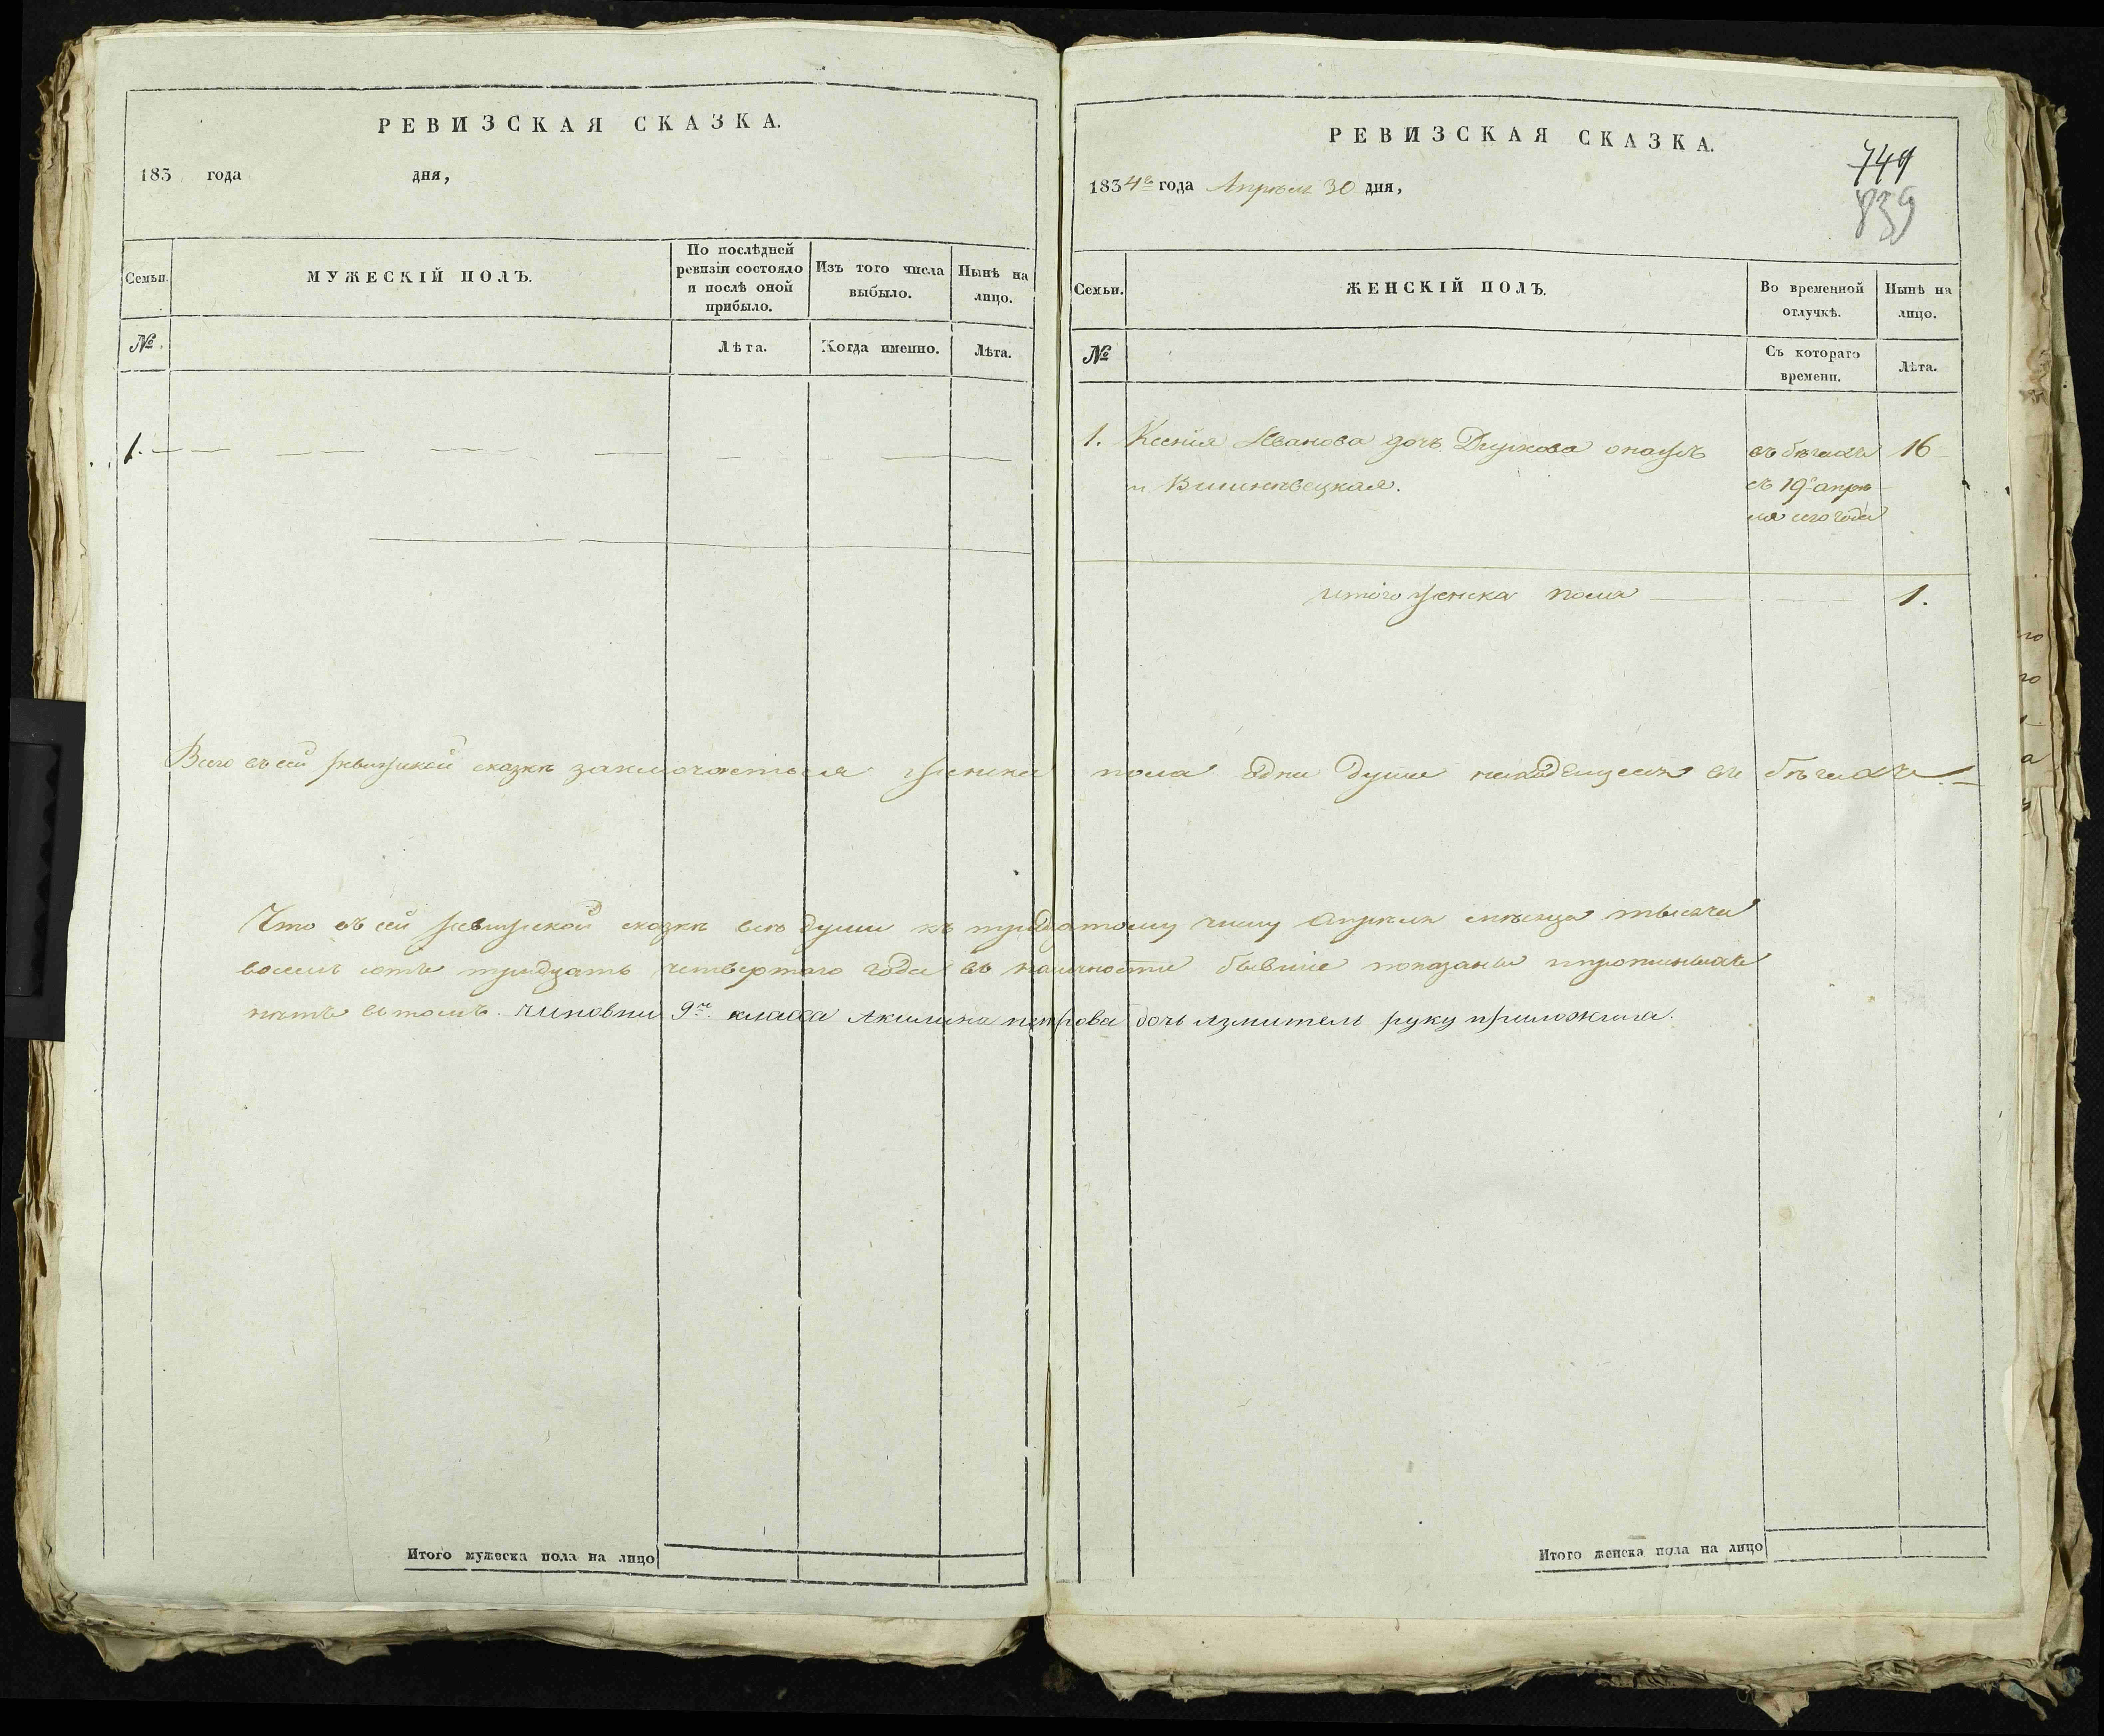 РЕВИЗСКАЯ СКАЗКА.
183 года дня,
Семьи.
МУЖЕСКІЙ ПОЛЪ.
По послѣдней ревизіи состояло и послѣ оной прибыло.
Изъ того числа выбыло.
Нынѣ на лицо.
№
Лѣта.
Когда именно.
Лѣта.
1.
Итого мужеска пола на лицо
РЕВИЗСКАЯ СКАЗКА.
749
839
1834го года Апреля 30 дня,
Семьи.
ЖЕНСКІЙ ПОЛЪ.
Во временной отлучкѣ.
Нынѣ на лицо.
№
Съ котораго времени.
Лѣта.
1. Ксенія Иванова дочь онажъ въ бѣгахъ 16
и Вишневецкая. съ 19го апрѣ
ля сего года
итого женска пола 1.
Всего въ сей ревизской сказкѣ заключается женска пола одна душа находящеся въ бѣгахъ
Что въ сей ревизской сказкѣ всѣ души къ тридцатому числу Апреля мѣсяца тысяча
восемь сотъ тридцать четвертого года въ наличности бывшіе показаны и
нѣтъ въ томъ. чиновни 9го класса Акилина петрова дочь руку приложила.
Итого женска пола на лицо